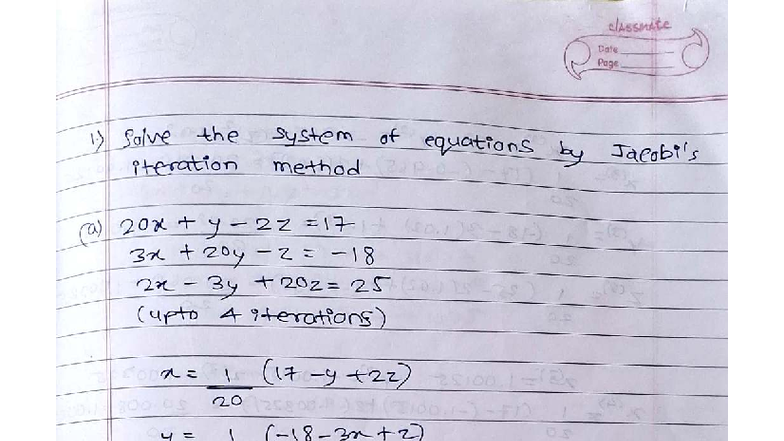 classmate
Date
Page
1) Solve the system of equations by Jacobi's
iteration method
(a) 20x + y - 2z = 17
3x + 20y - z = -18
2x - 3y + 20z = 25
(upto 4 iterations)
x = 1/20 (17 - y + 2z)
y = 1 (-18 - 3x + z)